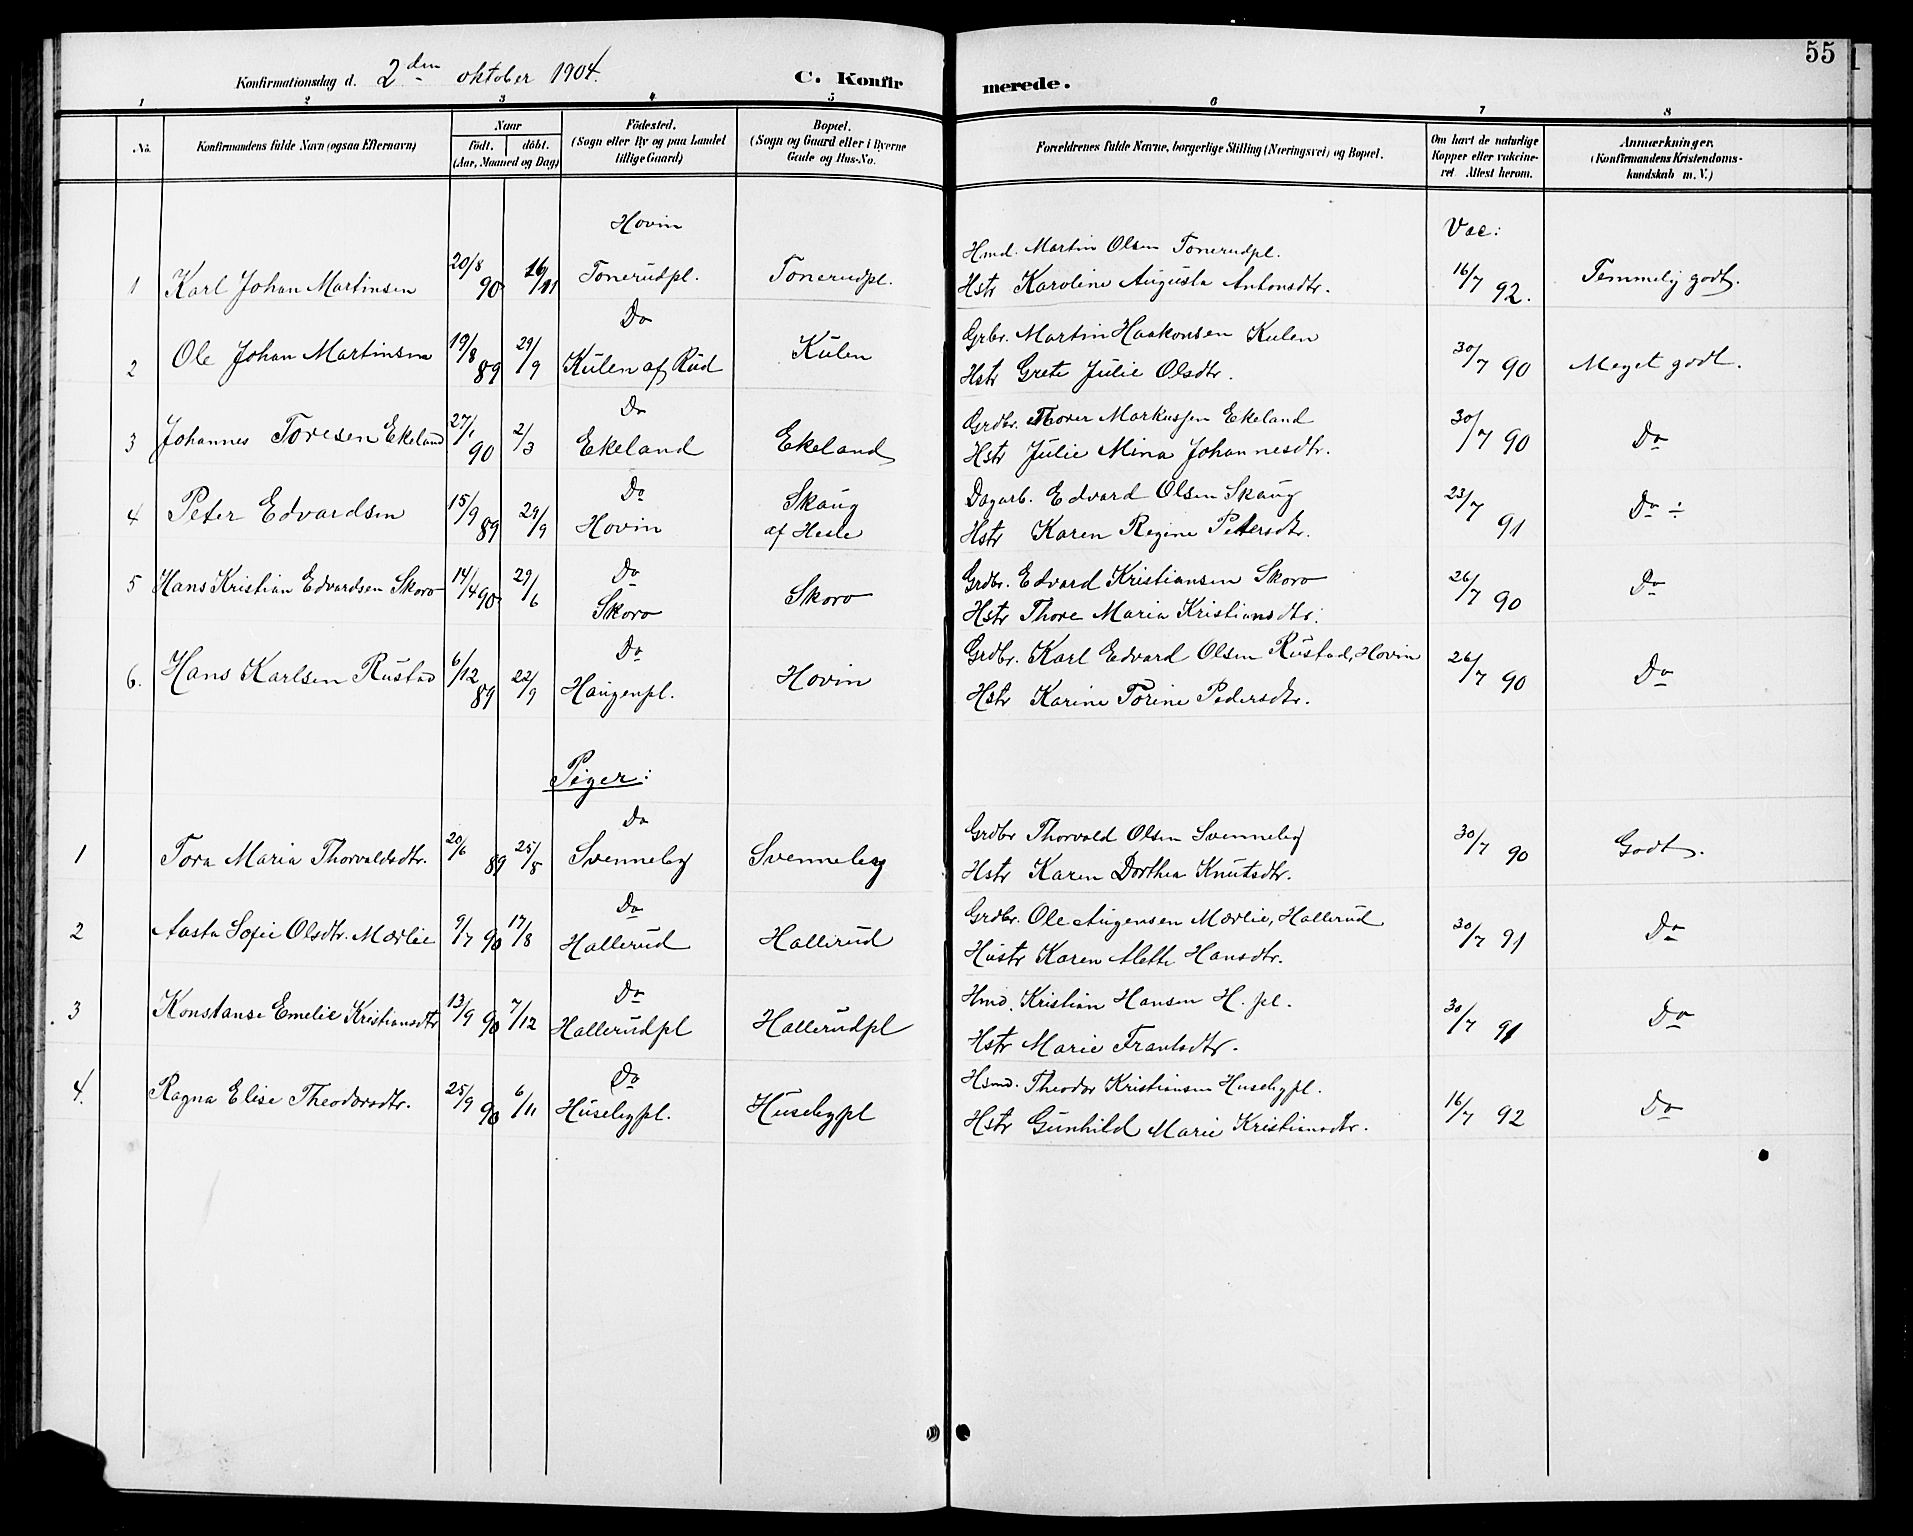 55
Konfirmationsdag d. 2den oktober 1904. C. Konfirmerede.
1 2 3 4 5 6 7 8
No. Konfirmandens fulde Navn (ogsaa Efternavn) Naar födt. döbt. (Aar, Maaned og Dag) Födested. (Sogn eller By og paa Landet tillige Gaard) Bopæl. (Sogn og Gaard eller i Byerne Gade og Hus-No. Forældrenes fulde Navne, borgerlige Stilling (Næringsvei) og Bopæl. Om havt de naturlige Kopper eller vakcineret Attest herom. Anmærkninger. (Konfirmandens Kristendomskundskab m. V.)
Hovin Vac:
1 Karl Johan Martinsen 20/8 90 16/11 Tonerudpl. Tonerudpl. Hmd. Martin Olsen Tonerudpl. 16/7 92. Temmelig godt.
Hstr Karoline Augusta Antonsdtr.
2 Ole Johan Martinsen 19/8 89 29/9 Do Kulen af Rud Kulen Grbr. Martin Haakonsen Kulen 30/7 90 Meget godt.
Hstr Grete Julie Olsdtr.
3 Johannes Toresen Ekeland 27/1 90 2/3 Do Ekeland Ekeland Grdbr. Thorer Markussen Ekeland 30/7 90 Do
Hstr Julie Mina Johannesdtr.
4 Peter Edvardsen 15/9 89 29/9 Do Hovin Skaug af Hesle Dagarb. Edvard Olsen Skaug 23/7 91 Do ÷
Hstr Karen Regine Petersdtr.
5 Hans Kristian Edvardsen Skoro 14/4 90 29/6 Do Skoro Skoro Grdbr. Edvard Kristiansen Skoro 26/7 90 Do
Hstr Thore Maria Kristiansdtr.
6. Hans Karlsen Rustad 6/12 89 22/9 Do Haugenpl. Hovin Grdbr. Karl Edvard Olsen Rustad, Hovin 26/7 90 Do
Hstr Karine Torine Pedersdtr.
Piger:
1 Tora Maria Thorvaldsdtr. 20/6 89 25/8 Do Svenneby Svenneby Grdbr Thorvald Olsen Svenneby 30/7 90 Godt.
Hstr Karen Dorthea Knutsdtr.
2 Aasta Sofie Olsdtr. Mœrlie 9/7 90 17/8 Do Hallerud Hallerud Grdbr. Ole Augensen Mœrlie, Hallerud 30/7 91 Do
Hustr Karen Alette Hansdtr.
3 Konstanse Emelie Kristiansdtr 13/9 90 7/12 Do Hallerudpl Hallerudpl Hmd. Kristian Hansen H. pl. 30/7 91 Do
Hstr Marie Frantsdtr.
4. Ragna Elise Theodorsdtr. 25/9 90 6/11 Do Husebypl. Husebypl Hsmd. Theodor Kristiansen Husebypl. 16/7 92 Do
Hstr Gunhild Marie Kristiansdtr.